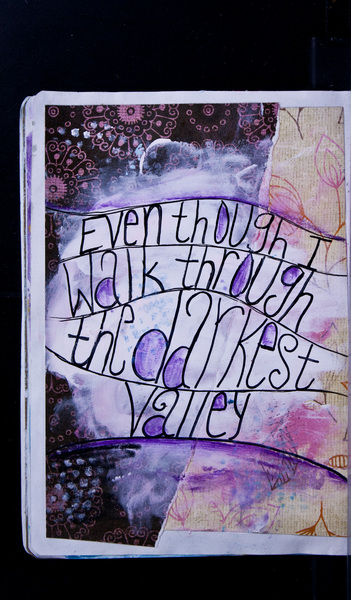 Even though I
walk through
the darkest
valley